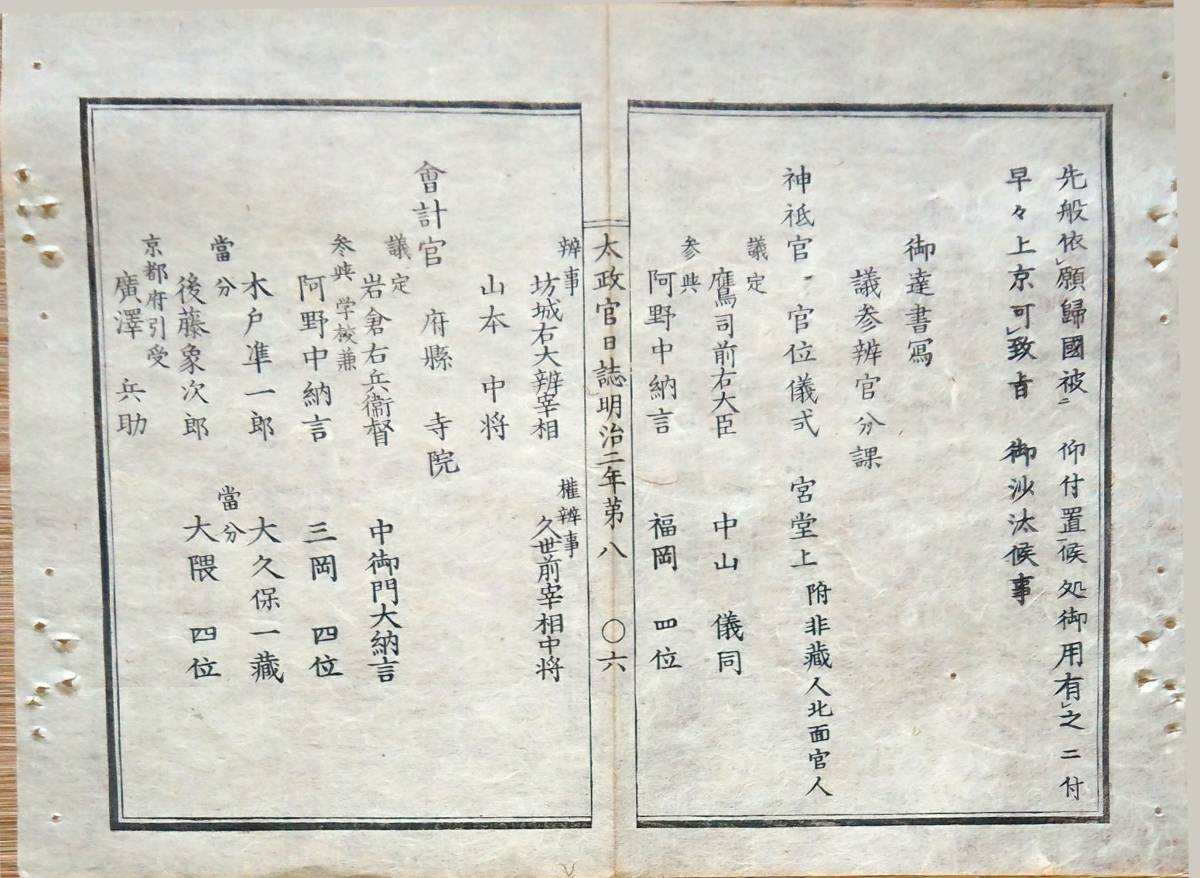 先般依願歸國被ニ 仰付置候処御用有之ニ付
早々上京可致旨 御沙汰候事
御達書寫
議参辨官分課
神祗官 官位儀式 宮堂上 附非藏人北面官人
議定
鷹司前右大臣 中山 儀同
参與
阿野中納言 福岡 四位
太政官日誌明治二年第八 〇六
辨事 權辨事
坊城右大辨宰相 久世前宰相中将
山本 中将
會計官 府縣 寺院
議定
岩倉右兵衞督 中御門大納言
参與 学校兼
阿野中納言 三岡 四位
木戸準一郎 大久保一藏
當分 當分
後藤象次郎 大隈 四位
京都府引受
廣澤 兵助